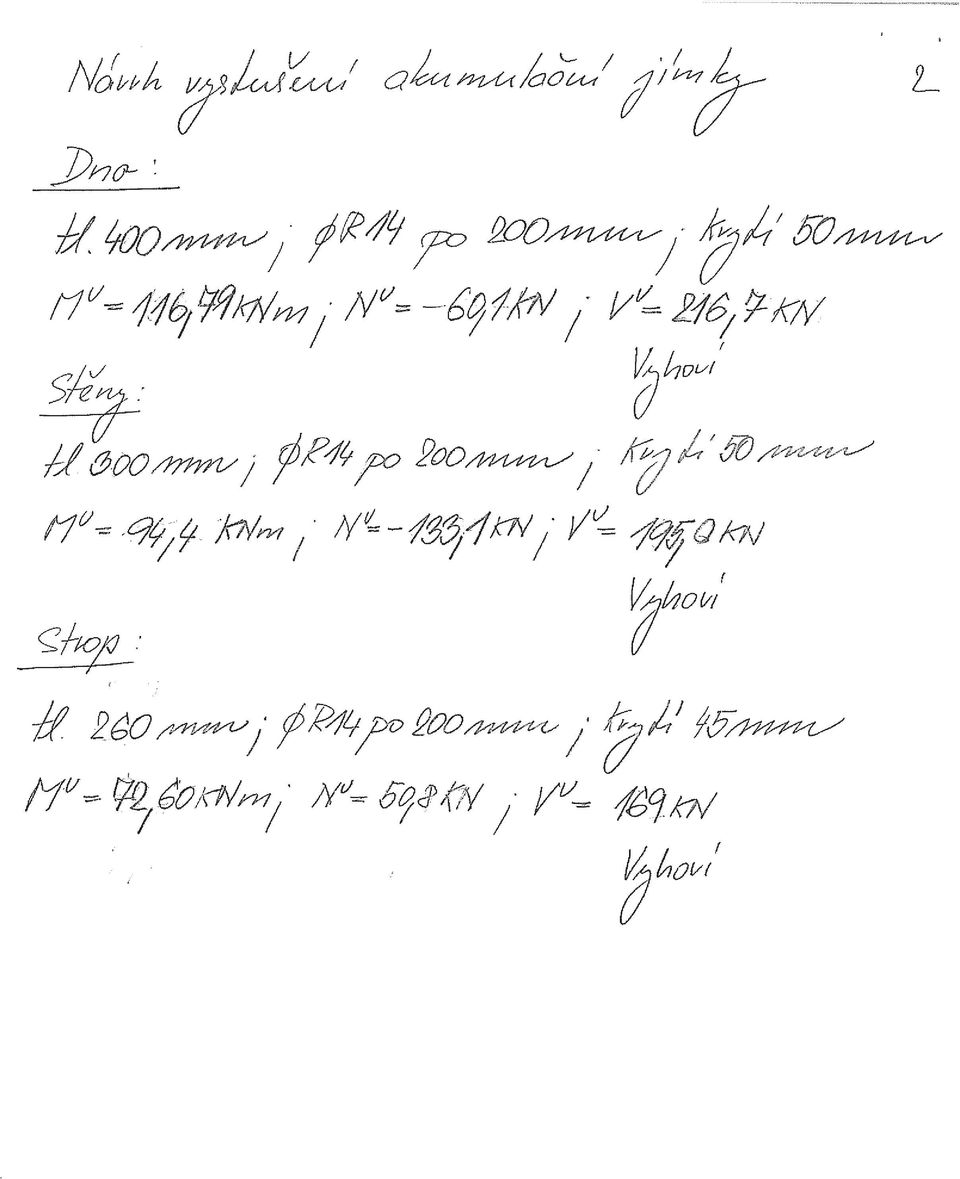 Návrh vyztužení akumulační jímky 2
Dno:
tl. 400 mm; ϕR14 po 200 mm; Krytí 50 mm
Mᵁ = 116,79 KNm; Nᵁ = -60,1 KN; Vᵁ = 216,7 KN
Vyhoví
Stěny:
tl 300 mm; ϕR14 po 200 mm; Krytí 50 mm
Mᵁ = 94,4 KNm; Nᵁ = -133,1 KN; Vᵁ = KN
Vyhoví
Strop:
tl. 260 mm; ϕR14 po 200 mm; Krytí 45 mm
Mᵁ = 72,60 KNm; Nᵁ = 50,8 KN; Vᵁ = 169 KN
Vyhoví